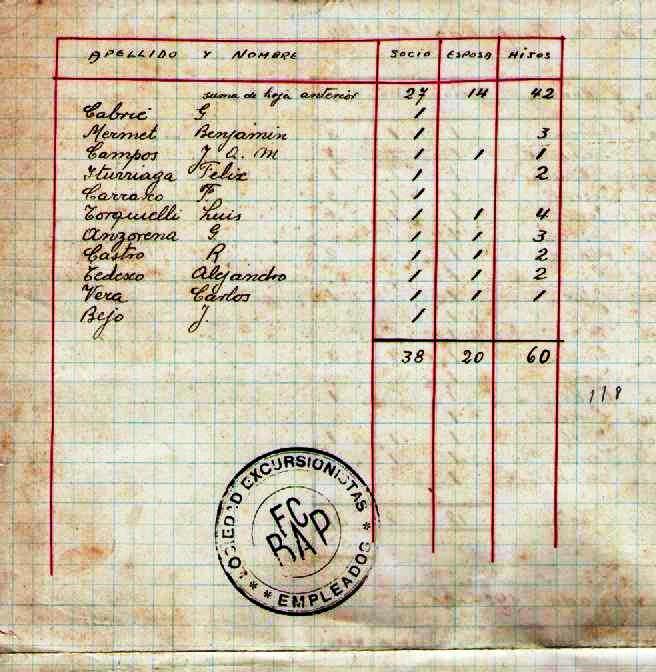 APELLIDO Y NOMBRE SOCIO ESPOSA HIJOS
suma de hoja anterior 27 14 42
Cabrié G 1
Mermet Benjamin 1 3
Campos J. A. M 1 1 1
Iturriaga Felix 1 2
Carraxo F. 1
Torquielli Luis 1 1 4
Anzorena G. 1 1 3
Castro R 1 1 2
Tedexo Alejandro 1 1 2
Vera Carlos 1 1 1
Bejo J. 1
38 20 60
118
SOCIEDAD EXCURSIONISTAS
FC
BAP
* * EMPLEADOS *